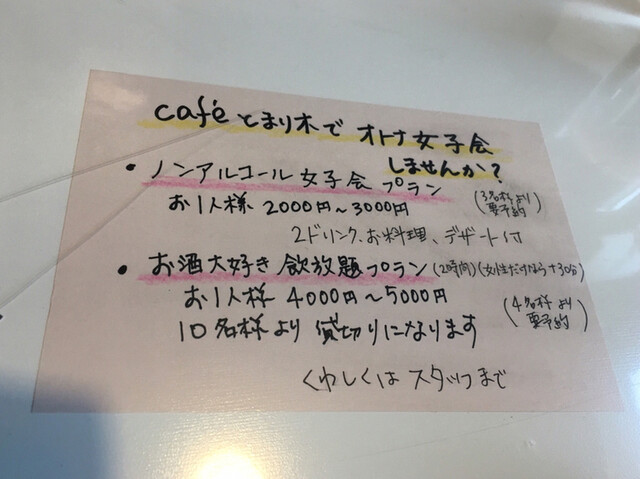 café とまり木で オトナ女子会
しませんか?
・ノンアルコール 女子会 プラン
お1人様 2000円~3000円 (3名様より要予約)
2ドリンク、お料理、デザート付
・お酒大好き 飲放題プラン(2時間)(女性だけなら+30分)
お1人様 4000円~5000円 (4名様より要予約)
10名様より 貸切りになります
くわしくは スタッフまで